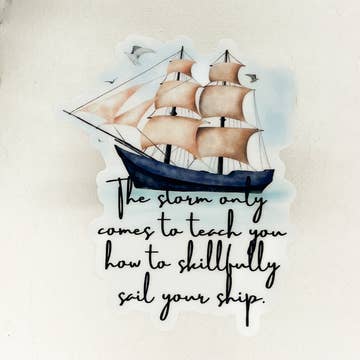 The storm only
comes to teach you
how to skillfully
sail your ship.